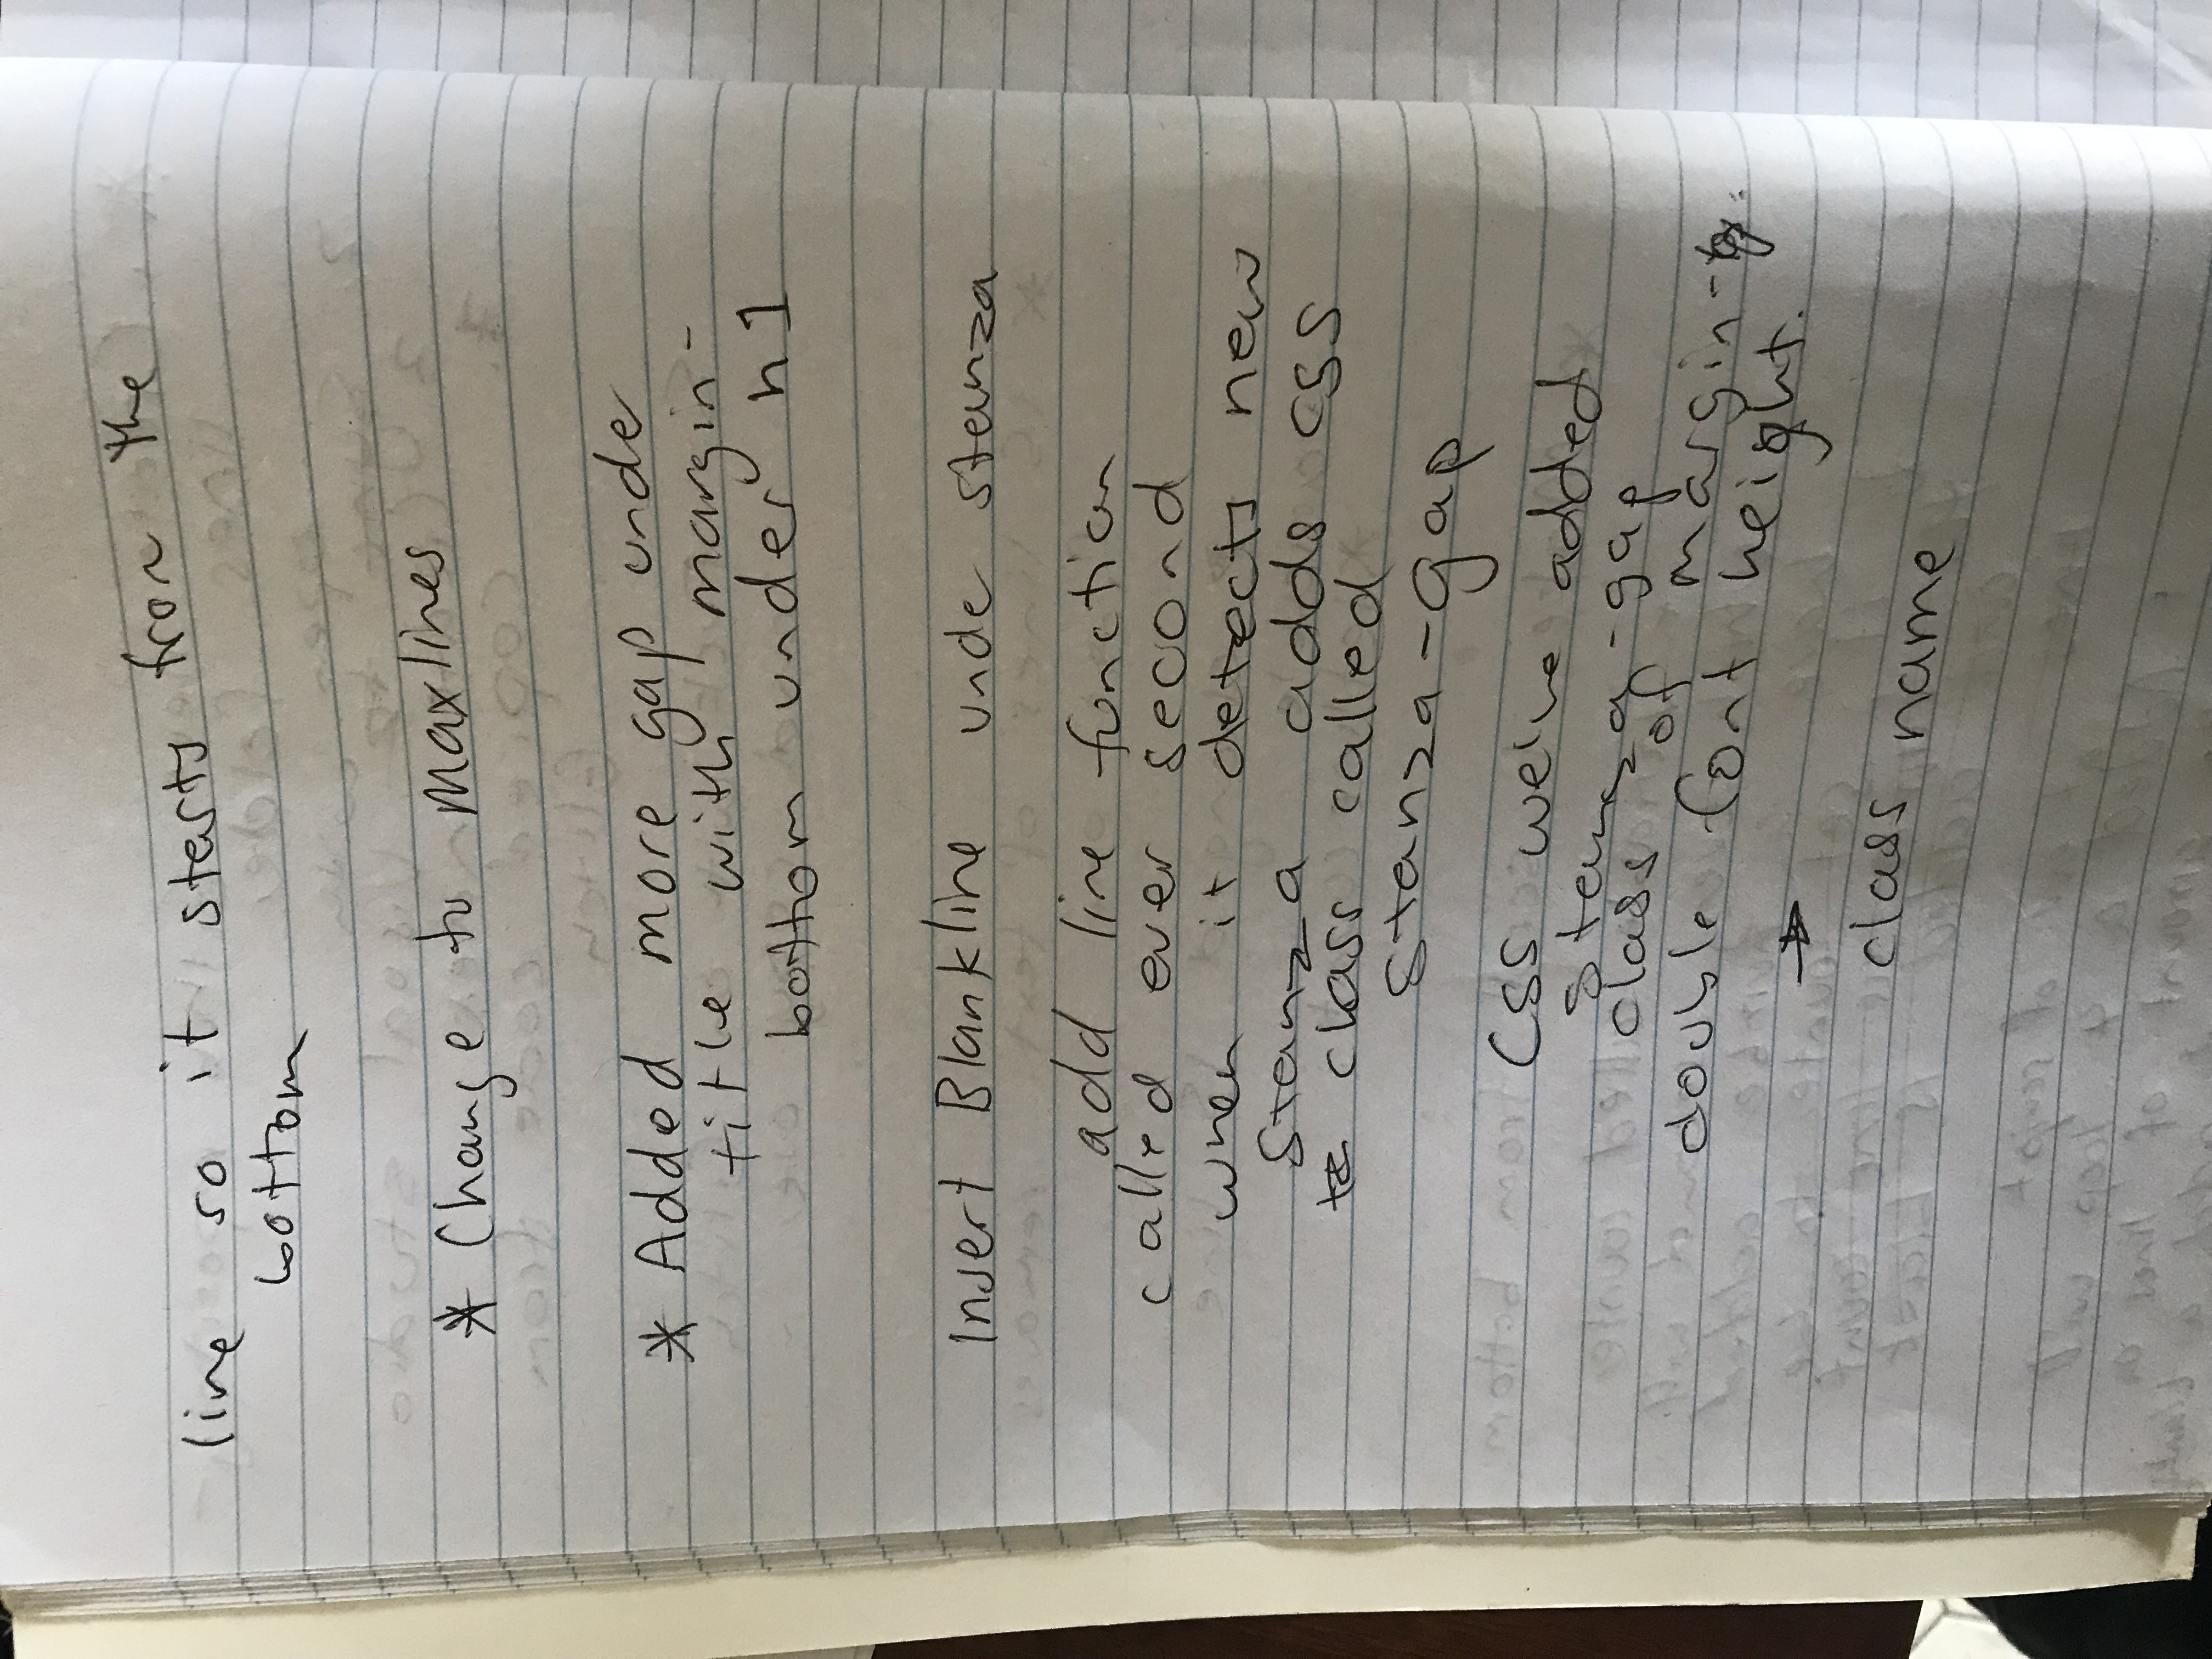 line so it starts from the
bottom
* Change to Maxlines
* Added more gap unde
title with margin-
bottom under h1
Insert Blankline unde stanza
add line function
called ever second
when it detects new
stanza adds CSS
class called
stanza-gap
CSS we've added
stanza-gap
class of margin-
double font height.
→
class name